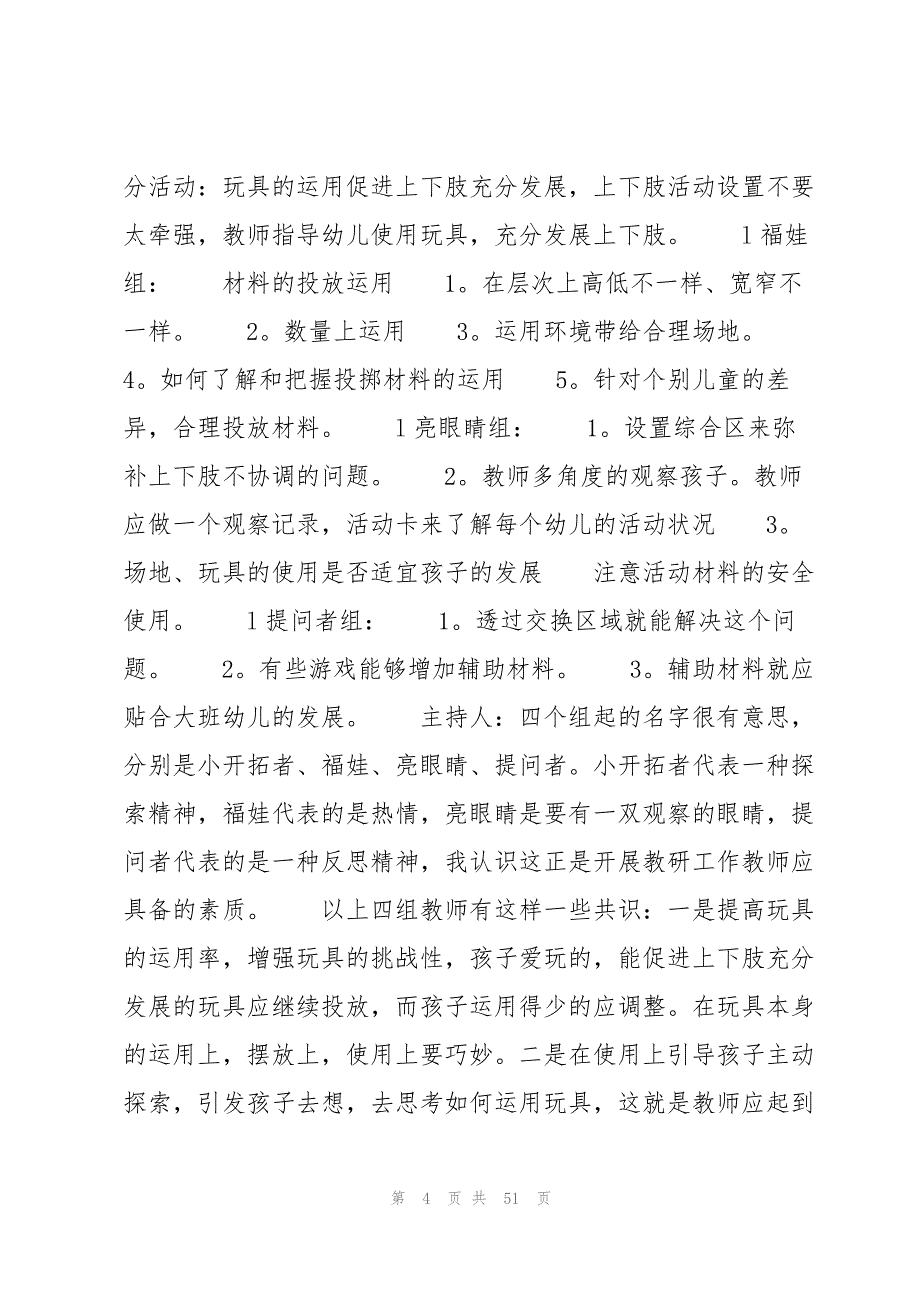 分活动：玩具的运用促进上下肢充分发展，上下肢活动设置不要
太牵强，教师指导幼儿使用玩具，充分发展上下肢。　　l福娃
组：　　材料的投放运用　　1。在层次上高低不一样、宽窄不
一样。　　2。数量上运用　　3。运用环境带给合理场地。
4。如何了解和把握投掷材料的运用　　5。针对个别儿童的差
异，合理投放材料。　　l亮眼睛组：　　1。设置综合区来弥
补上下肢不协调的问题。　　2。教师多角度的观察孩子。教师
应做一个观察记录，活动卡来了解每个幼儿的活动状况　　3。
场地、玩具的使用是否适宜孩子的发展　　注意活动材料的安全
使用。　　l提问者组：　　1。透过交换区域就能解决这个问
题。　　2。有些游戏能够增加辅助材料。　　3。辅助材料就应
贴合大班幼儿的发展。　　主持人：四个组起的名字很有意思，
分别是小开拓者、福娃、亮眼睛、提问者。小开拓者代表一种探
索精神，福娃代表的是热情，亮眼睛是要有一双观察的眼睛，提
问者代表的是一种反思精神，我认识这正是开展教研工作教师应
具备的素质。　　以上四组教师有这样一些共识：一是提高玩具
的运用率，增强玩具的挑战性，孩子爱玩的，能促进上下肢充分
发展的玩具应继续投放，而孩子运用得少的应调整。在玩具本身
的运用上，摆放上，使用上要巧妙。二是在使用上引导孩子主动
探索，引发孩子去想，去思考如何运用玩具，这就是教师应起到
第 4 页 共 51 页